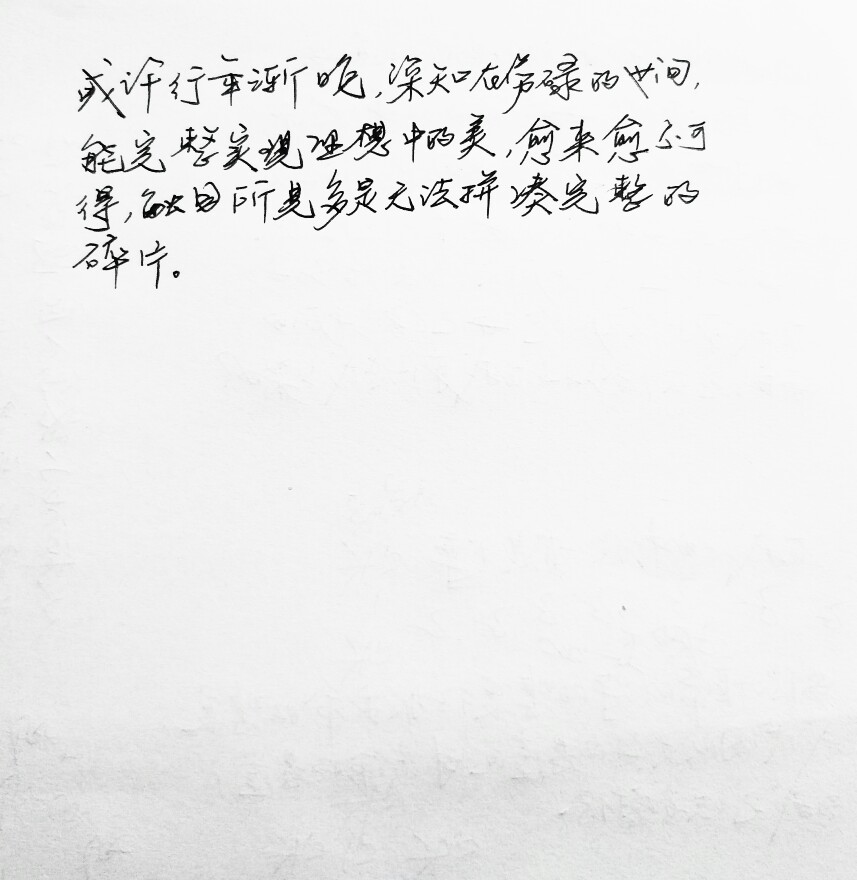 或许行年渐晚,深知在劳碌的世间,
能完整实现理想中的美,愈来愈不可
得,触目所见多是无法拼凑完整的
碎片。